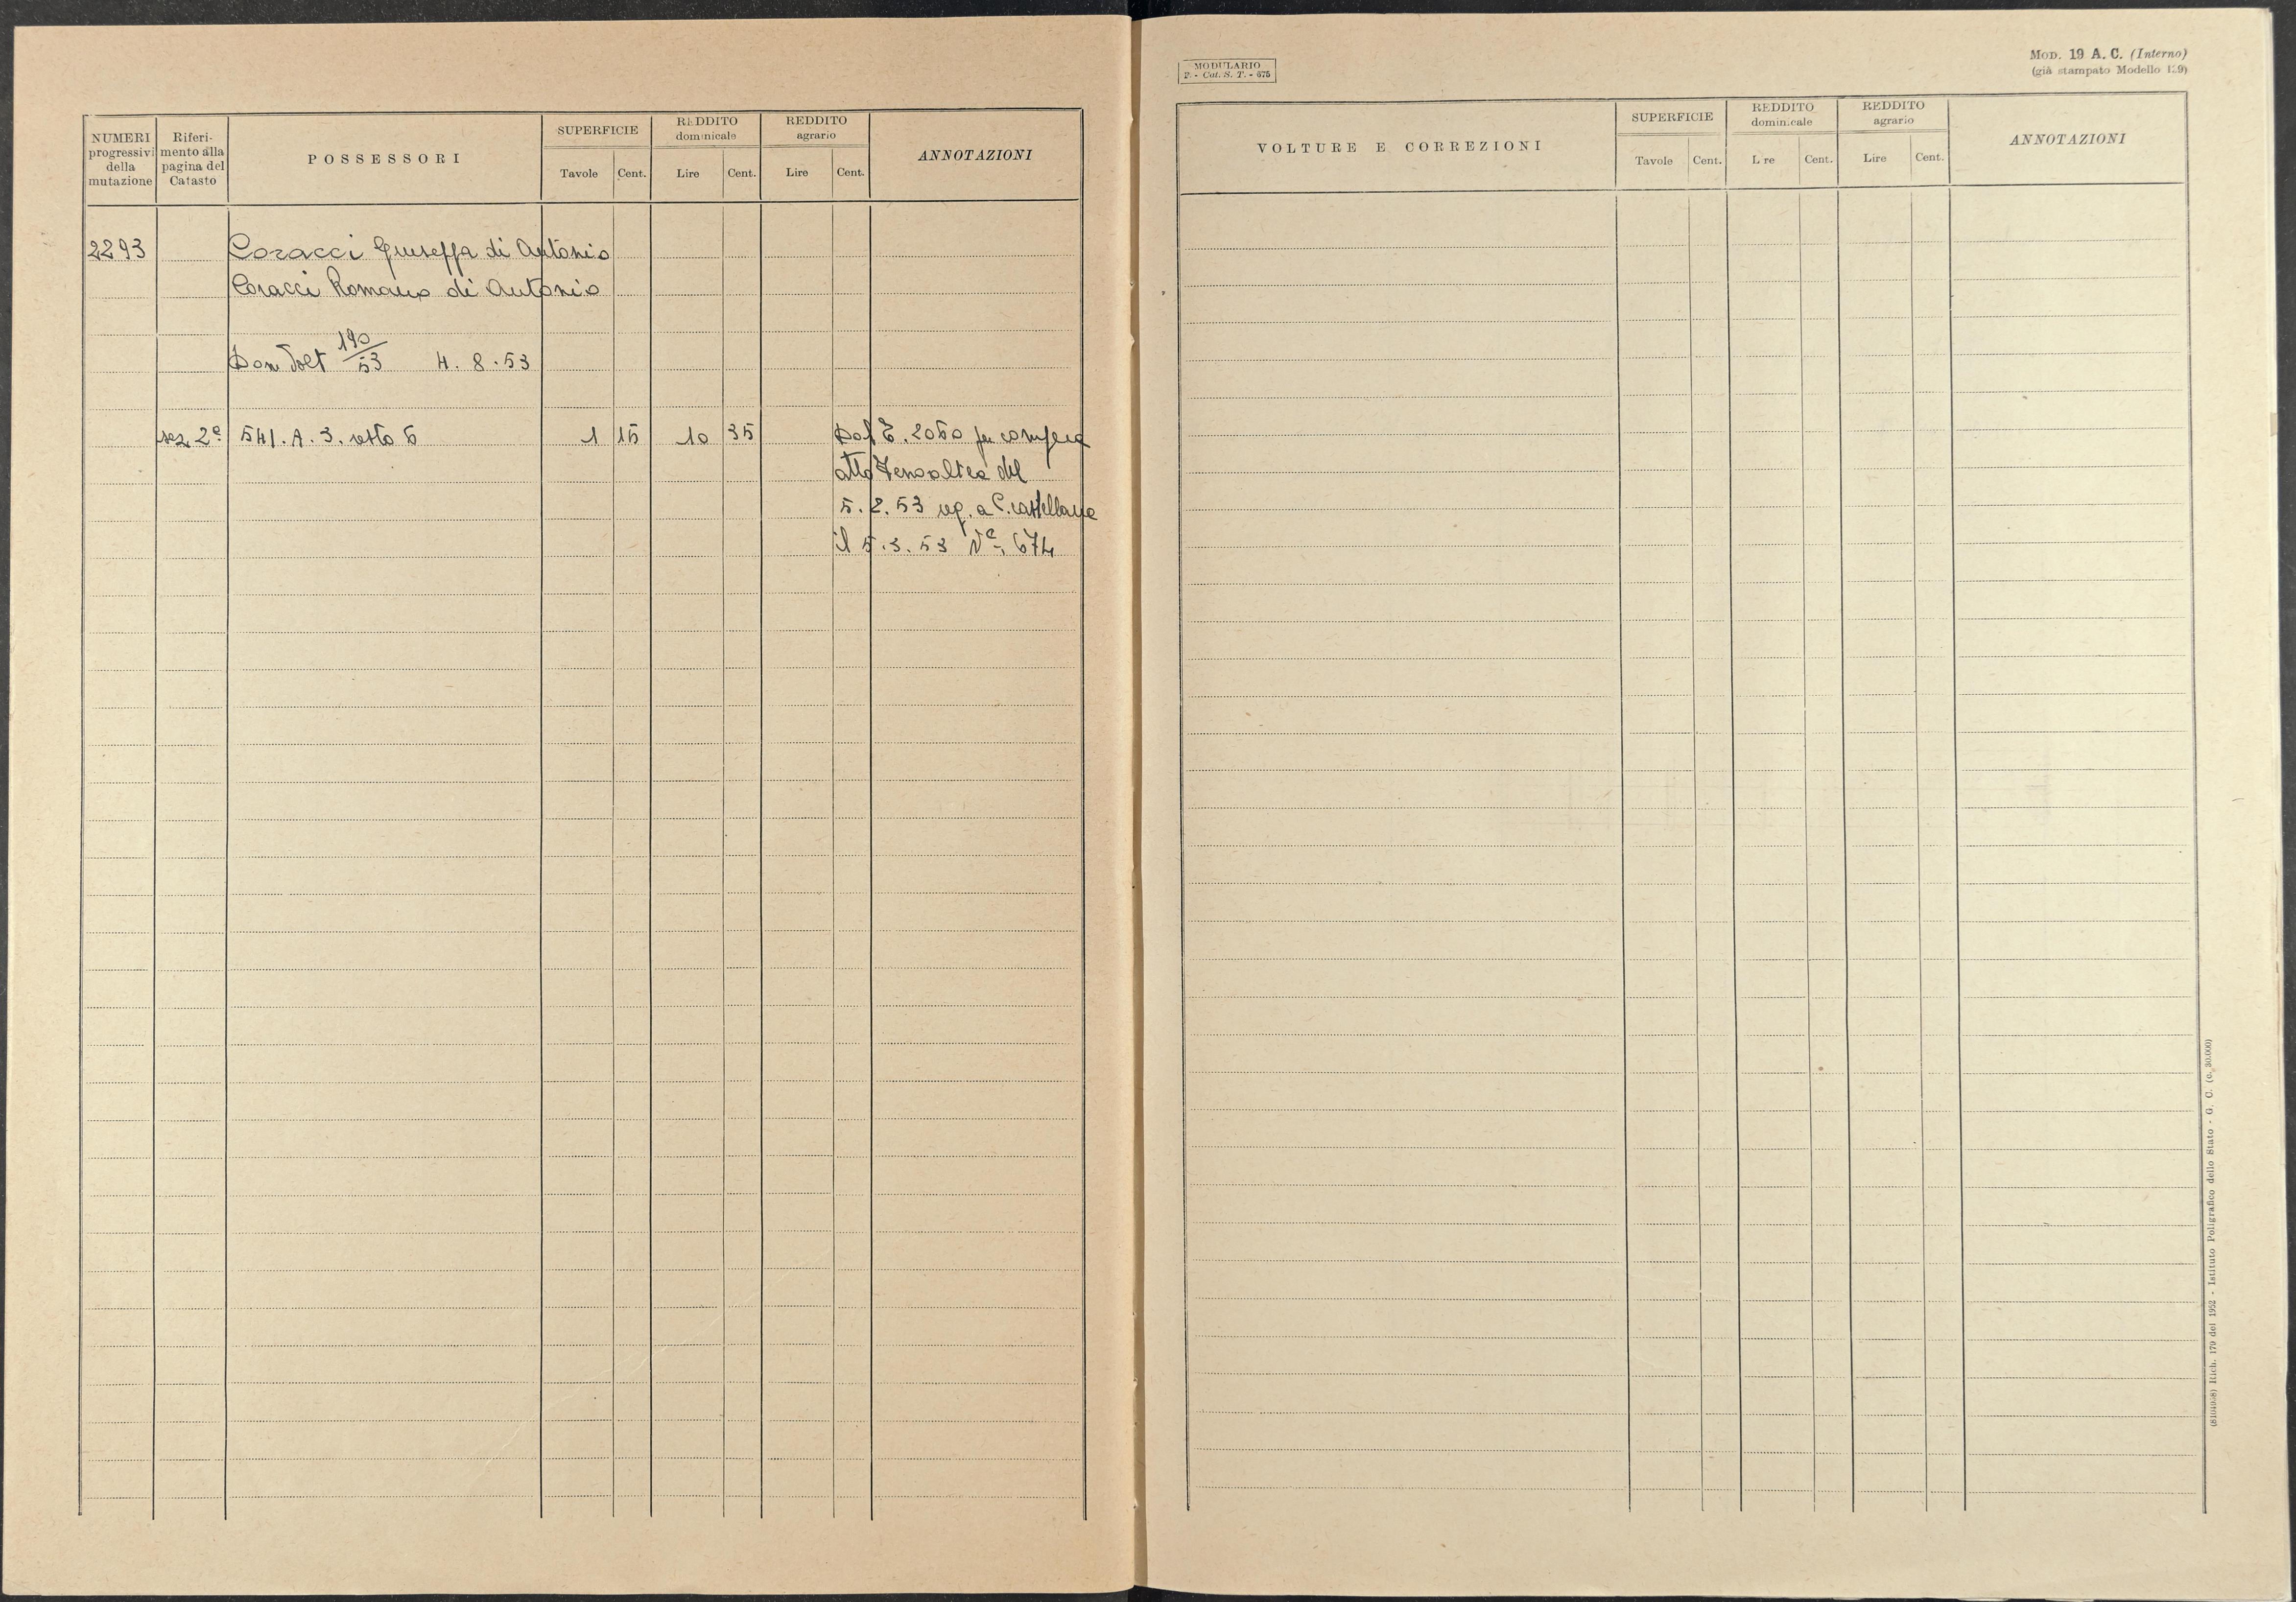 NUMERI progressivi della mutazione
Riferimento alla pagina del Catasto
POSSESSORI
SUPERFICIE
Tavole Cent.
REDDITO dominicale
Lire Cent.
REDDITO agrario
Lire Cent.
ANNOTAZIONI
2293 Coracci Giuseppa di Antonio
Coracci Romano di Antonio
Dom Volt 190/53 4.8.53
sez 2ª 541.A.3. resto 6 1 15 10 35 Dal 2060 per compera
atto del
5.2.53 reg. a C. castellana
il 5.3.53 Nº 674
MODULARIO
F. - Cat. S. T. - 675
MOD. 19 A. C. (Interno)
(già stampato Modello 129)
VOLTURE E CORREZIONI
SUPERFICIE
Tavole Cent.
REDDITO dominicale
L re Cent.
REDDITO agrario
Lire Cent.
ANNOTAZIONI
Rich. 170 del 1952 - Istituto Poligrafico dello Stato - G. C. (c. 30.000)